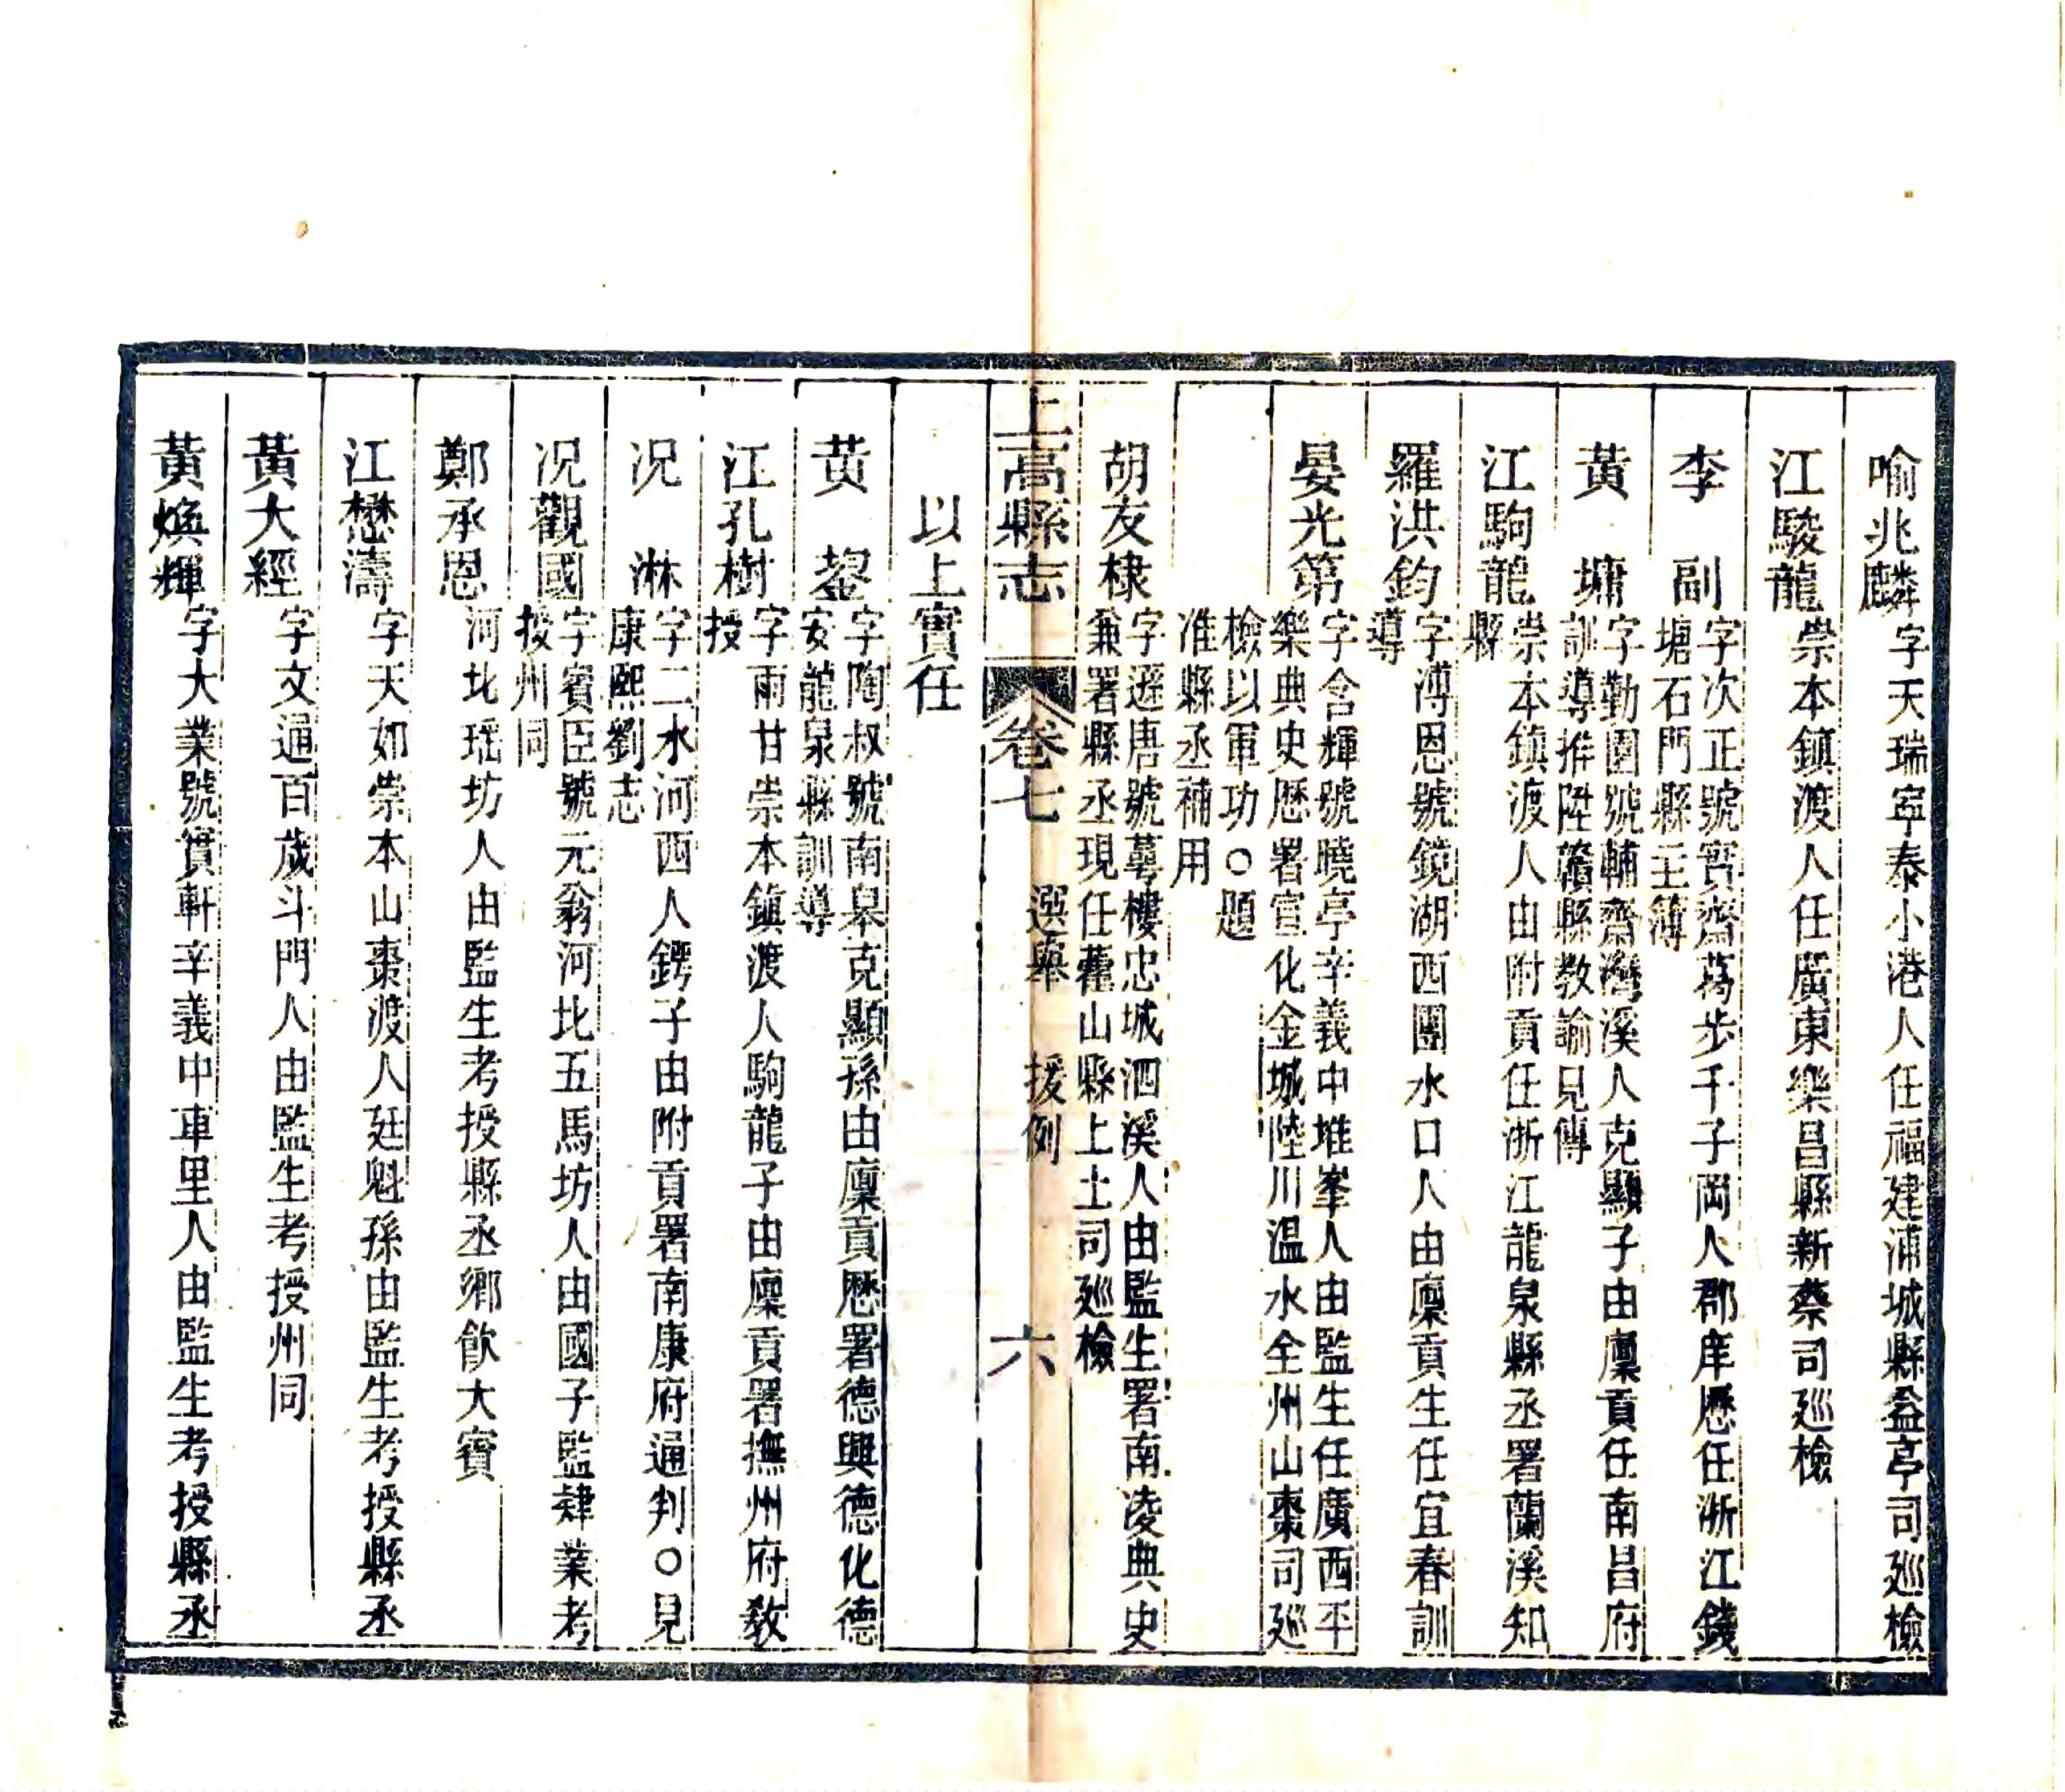 喻兆麟字天瑞寧泰小港人任福建浦城縣盆亭司廵檢
江駿龍崇本鎮渡人任廣東樂昌縣新蔡司廵檢
李　副字次正號賓齋蒍步千子岡人郡庠歷任浙江錢
塘石門縣主簿
黃　墉字勤圃號輔齋灣溪人克顯子由廩貢任南昌府
訓導推陞贛縣教諭見傳
江駒龍崇本鎮渡人由附貢任浙江龍泉縣丞署蘭溪知
縣
羅洪鈞字溥恩號鏡湖西團水口人由廩貢生任宜春訓
導
晏光第字含輝號曉亭辛義中堆峯人由監生任廣西平
樂典史歷署宣化金城陸川溫水全州山棗司廵
檢以軍功○題
准縣丞補用
胡友棣字遊唐號蕚樓忠城泗溪人由監生署南凌典史
兼署縣丞現任藿山縣上土司廵檢
上高縣志　卷七　選舉　援例　六
以上實任
黃　鋆字陶叔號南皋克顯孫由廩貢歷署德興德化德
安龍泉縣訓導
江孔樹字雨甘崇本鎮渡人駒龍子由廩貢署撫州府教
授
况　淋字二水河西人鍔子由附貢署南康府通判○見
康熙劉志
况觀國字賓臣號元翁河北五馬坊人由國子監肄業考
授州同
鄭承恩河北瑶坊人由監生考授縣丞鄉飲大賓
江懋濤字天如崇本山棗渡人廷魁孫由監生考授縣丞
黃大經字文通百歲斗門人由監生考授州同
黃煥輝字大業號貫軒辛義中車里人由監生考授縣丞